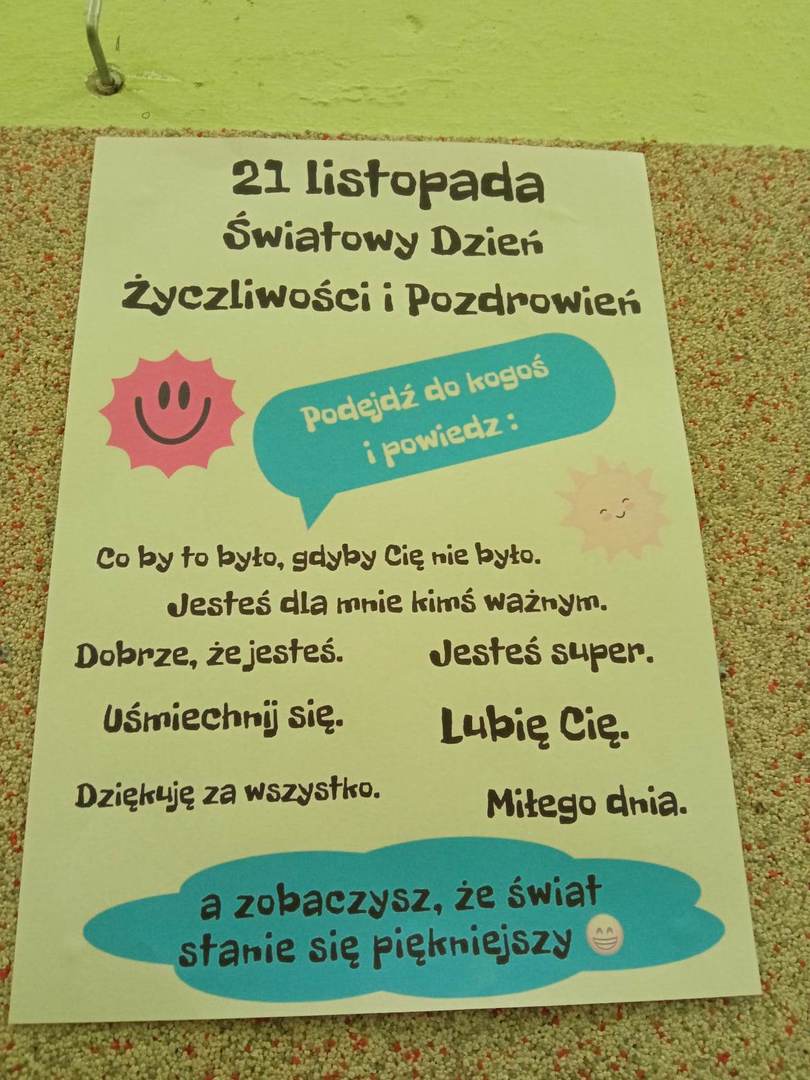 21 listopada
Światowy Dzień
Życzliwości i Pozdrowień
Podejdź do kogoś
i powiedz :
Co by to było, gdyby Cię nie było.
Jesteś dla mnie kimś ważnym.
Dobrze, że jesteś.
Jesteś super.
Uśmiechnij się.
Lubię Cię.
Dziękuję za wszystko.
Miłego dnia.
a zobaczysz, że świat
stanie się piękniejszy 😁